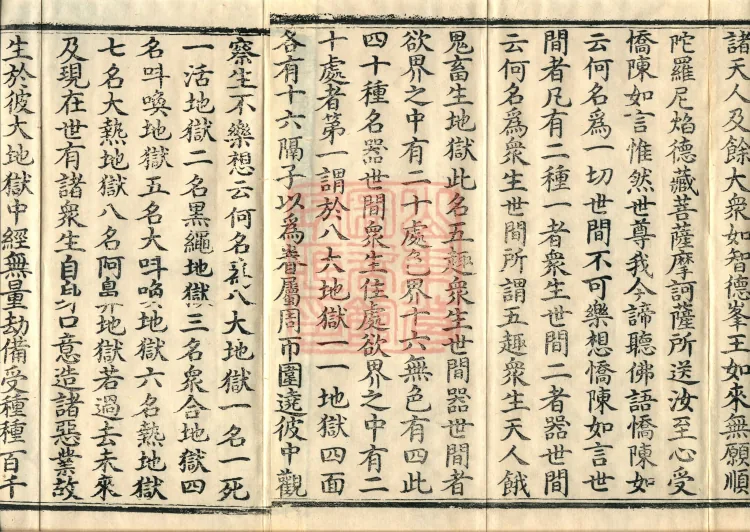 諸天人及餘大衆如智德峯王如來無願順
陀羅尼焰德藏菩薩摩訶薩所送汝至心受
憍陳如言惟然世尊我今諦聽佛語憍陳如
云何名爲一切世間不可樂想憍陳如言世
間者凡有二種一者衆生世間二者器世間
云何名爲衆生世間所謂五趣衆生天人餓
鬼畜生地獄此名五趣衆生世間器世間者
欲界之中有二十處色界十六無色有四此
四十種名器世間衆生住處欲界之中有二
十處者第一謂於八大地獄一一地獄四面
各有十六隔子以爲眷屬周帀圍遶彼中觀
察生不樂想云何名爲八大地獄一名一死
一活地獄二名黑繩地獄三名衆合地獄四
名呌喚地獄五名大呌喚地獄六名熱地獄
七名大熱地獄八名阿鼻地獄若過去未來
及現在世有諸衆生自身口意造諸惡業故
生於彼大地獄中經無量劫備受種種百千